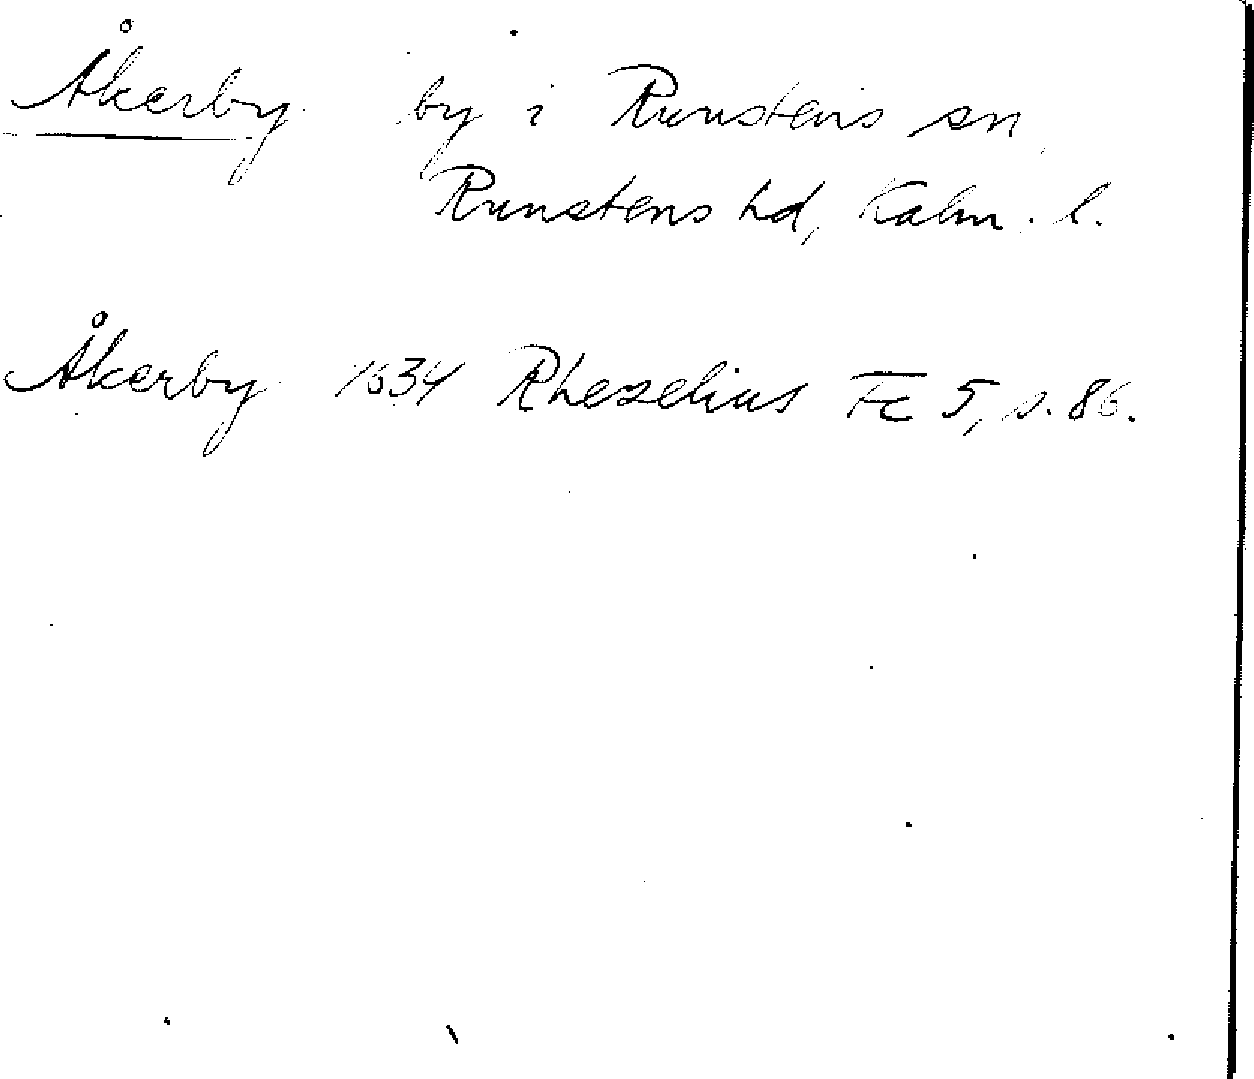 Åkerby by i Runstens sn
Runstens hd, Kalm. l.
Åkerby 1634 Rhezelius Fc 5, s. 86.